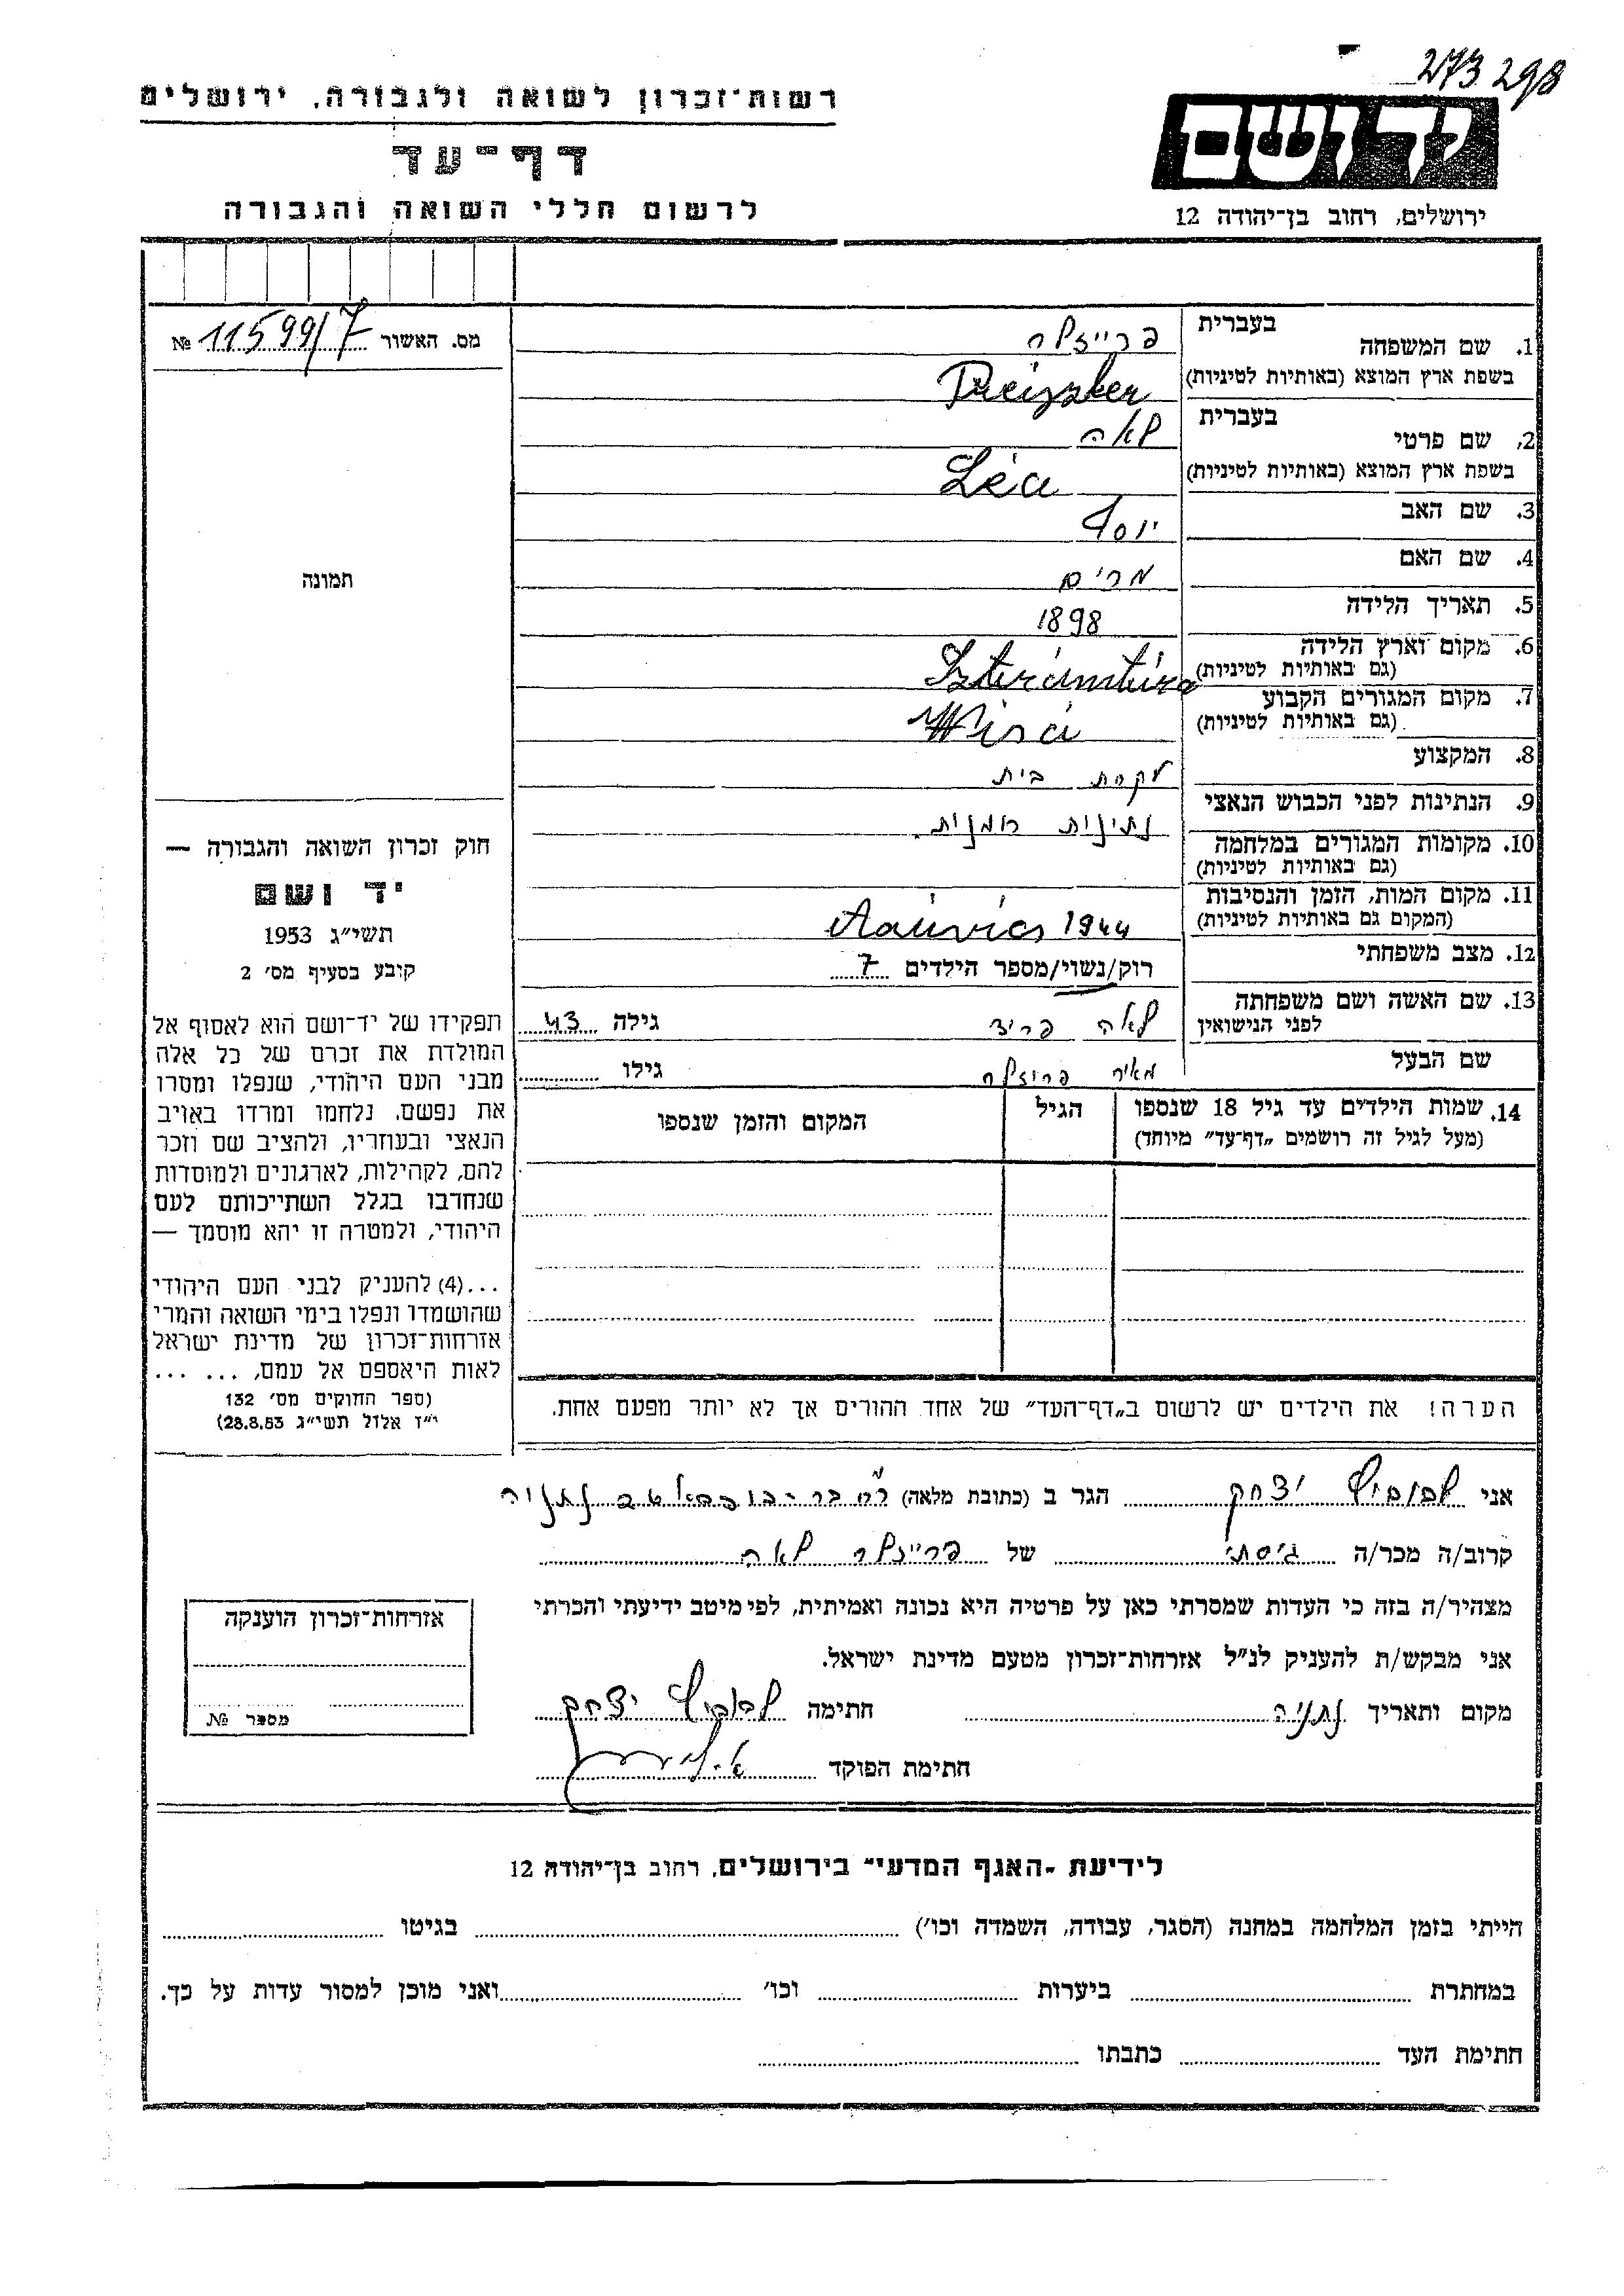 273298
רשות־זכרון לשואה ולגבורה, ירושלים
דף־עד
לרשום חללי השואה והגבורה
יד ושם
ירושלים, רחוב בן־יהודה 12
מס. האשור 11599/7 №
1. שם המשפחה בעברית פרייזלר
בשפת ארץ המוצא (באותיות לטיניות) Preiszler
2. שם פרטי בעברית לאה
בשפת ארץ המוצא (באותיות לטיניות) Léa
3. שם האב יוסף
4. שם האם מרים
5. תאריך הלידה 1898
6. מקום וארץ הלידה
(גם באותיות לטיניות) Szterámtura
7. מקום המגורים הקבוע
(גם באותיות לטיניות)
8. המקצוע עקרת בית
9. הנתינות לפני הכבוש הנאצי נתינות רומנית
10. מקומות המגורים במלחמה
(גם באותיות לטיניות)
11. מקום המות, הזמן והנסיבות
(המקום גם באותיות לטיניות) 1944
12. מצב משפחתי רוק/נשוי/מספר הילדים 7
13. שם האשה ושם משפחתה
לפני הנישואין לאה פריד גילה 43
שם הבעל מאיר פרוזלר גילו
14. שמות הילדים עד גיל 18 שנספו
(מעל לגיל זה רושמים „דף־עד״ מיוחד)
הגיל
המקום והזמן שנספו
הערה! את הילדים יש לרשום ב„דף־העד״ של אחד ההורים אך לא יותר מפעם אחת.
תמונה
חוק זכרון השואה והגבורה —
יד ושם
תשי״ג 1953
קובע בסעיף מס׳ 2
תפקידו של יד־ושם הוא לאסוף אל
המולדת את זכרם של כל אלה
מבני העם היהודי, שנפלו ומסרו
את נפשם, נלחמו ומרדו באויב
הנאצי ובעוזריו, ולהציב שם וזכר
להם, לקהילות, לארגונים ולמוסדות
שנחרבו בגלל השתייכותם לעם
היהודי, ולמטרה זו יהא מוסמך —
...(4) להעניק לבני העם היהודי
שהושמדו ונפלו בימי השואה והמרי
אזרחות־זכרון של מדינת ישראל
לאות היאספם אל עמם, ... ...
(ספר החוקים מס׳ 132
י״ז אלול תשי״ג 28.8.53)
אני יצחק הגר ב (כתובת מלאה) נתניה
קרוב/ה מכר/ה גיסתי של פרייזלר לאה
מצהיר/ה בזה כי העדות שמסרתי כאן על פרטיה היא נכונה ואמיתית, לפי מיטב ידיעתי והכרתי
אני מבקש/ת להעניק לנ״ל אזרחות־זכרון מטעם מדינת ישראל.
מקום ותאריך נתניה חתימה יצחק
חתימת הפוקד
אזרחות־זכרון הוענקה
מספר №
לידיעת ״האגף המדעי״ בירושלים, רחוב בן־יהודה 12
הייתי בזמן המלחמה במחנה (הסגר, עבודה, השמדה וכו׳) בגיטו
במחתרת ביערות וכו׳ ואני מוכן למסור עדות על כך.
חתימת העד כתבתו